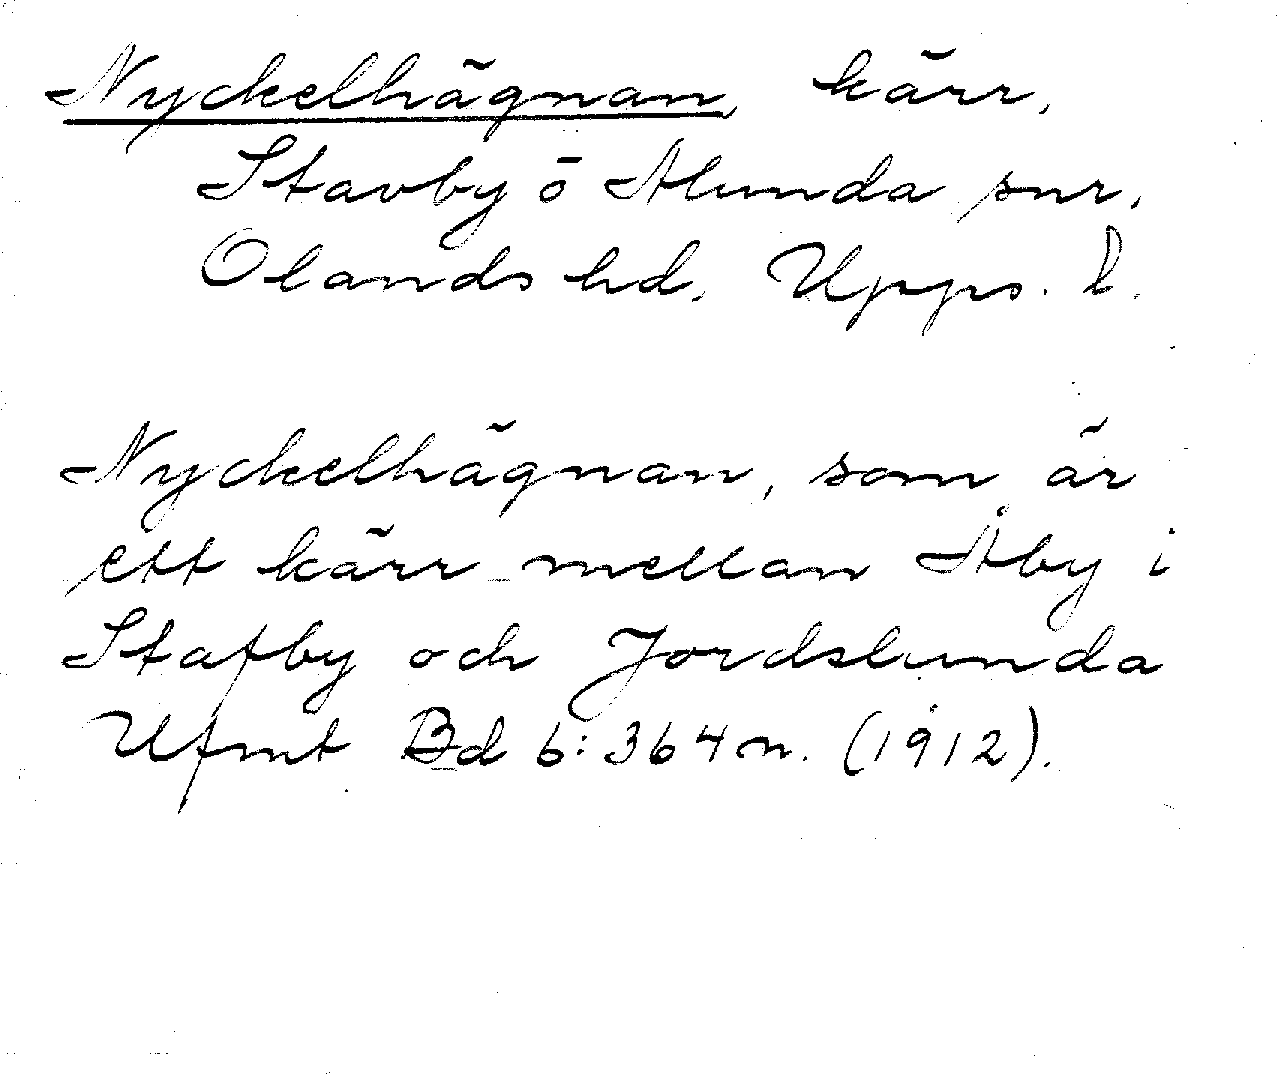 Nyckelhägnan, kärr,
Stavby o Alunda snr,
Olands hd, Upps. l.
Nyckelhägnan, som är
ett kärr mellan Åby i
Stafby och Jordslunda
Ufmt Bd 6:364 n. (1912).